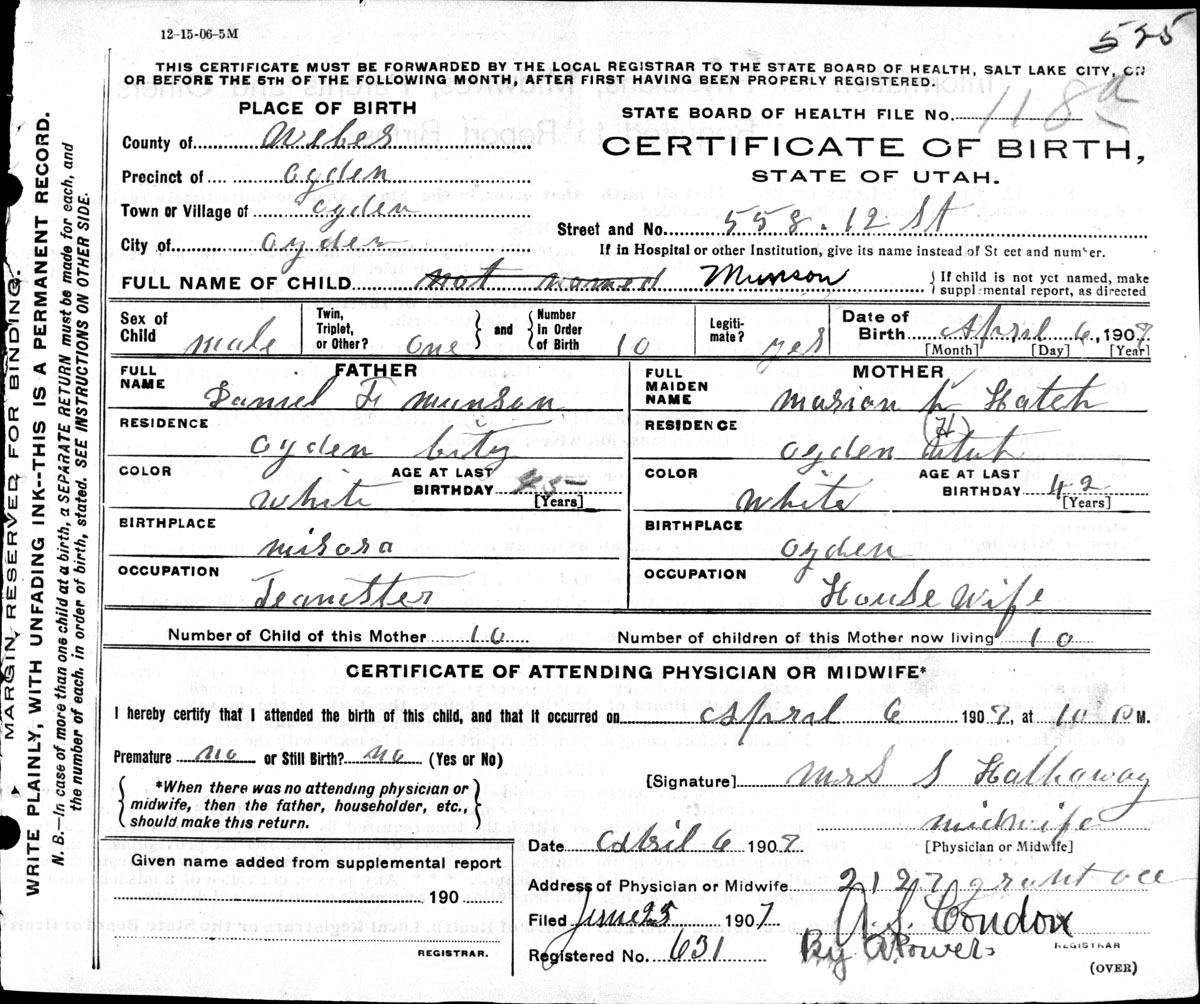 12-15-06-5M
525
THIS CERTIFICATE MUST BE FORWARDED BY THE LOCAL REGISTRAR TO THE STATE BOARD OF HEALTH, SALT LAKE CITY, ON
OR BEFORE THE 5TH OF THE FOLLOWING MONTH, AFTER FIRST HAVING BEEN PROPERLY REGISTERED.
PLACE OF BIRTH
County of Weber
Precinct of Ogden
Town or Village of Ogden
City of Ogden
STATE BOARD OF HEALTH FILE No. 118a
CERTIFICATE OF BIRTH,
STATE OF UTAH.
Street and No. 558. 12 St
If in Hospital or other Institution, give its name instead of Street and number.
FULL NAME OF CHILD not named Munson
{If child is not yet named, make supplemental report, as directed
Sex of Child male
Twin, Triplet, or Other? one
and
Number in Order of Birth 10
Legitimate? yes
Date of Birth April 6, 1907
[Month] [Day] [Year]
FATHER
FULL NAME Daniel F Munson
RESIDENCE Ogden City
COLOR White
AGE AT LAST BIRTHDAY 45
[Years]
BIRTHPLACE misora
OCCUPATION Teamster
MOTHER
FULL MAIDEN NAME Marion L Hatch
(H)
RESIDENCE Ogden Utah
COLOR White
AGE AT LAST BIRTHDAY 42
[Years]
BIRTHPLACE Ogden
OCCUPATION House Wife
Number of Child of this Mother 10
Number of children of this Mother now living 10
CERTIFICATE OF ATTENDING PHYSICIAN OR MIDWIFE*
I hereby certify that I attended the birth of this child, and that it occurred on April 6 1907, at 10 P M.
Premature no or Still Birth? no (Yes or No)
{*When there was no attending physician or
midwife, then the father, householder, etc.,
should make this return.}
[Signature] Mrs S Hathaway
midwife
[Physician or Midwife]
Date April 6 1907
Address of Physician or Midwife 2127 grant ave
Filed June 25 1907
A. S. Condon
REGISTRAR
Registered No. 631
By A Powers
(OVER)
Given name added from supplemental report
190
REGISTRAR.
MARGIN RESERVED FOR BINDING.
WRITE PLAINLY, WITH UNFADING INK--THIS IS A PERMANENT RECORD.
N. B.—In case of more than one child at a birth, a SEPARATE RETURN must be made for each, and
the number of each, in order of birth, stated. SEE INSTRUCTIONS ON OTHER SIDE.